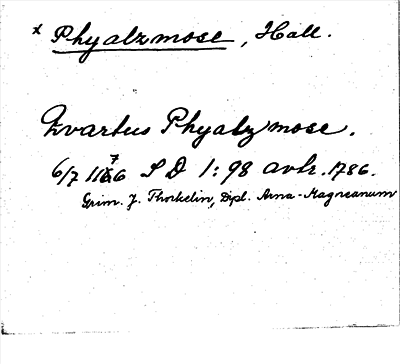 x Phyalzmose, Hall.
Zvartus Phyalzmose.
6/7 1176 S D 1:98 avtr. 1786.
Grim. J. Thorkelin, Dipl. Arna-Magneanum